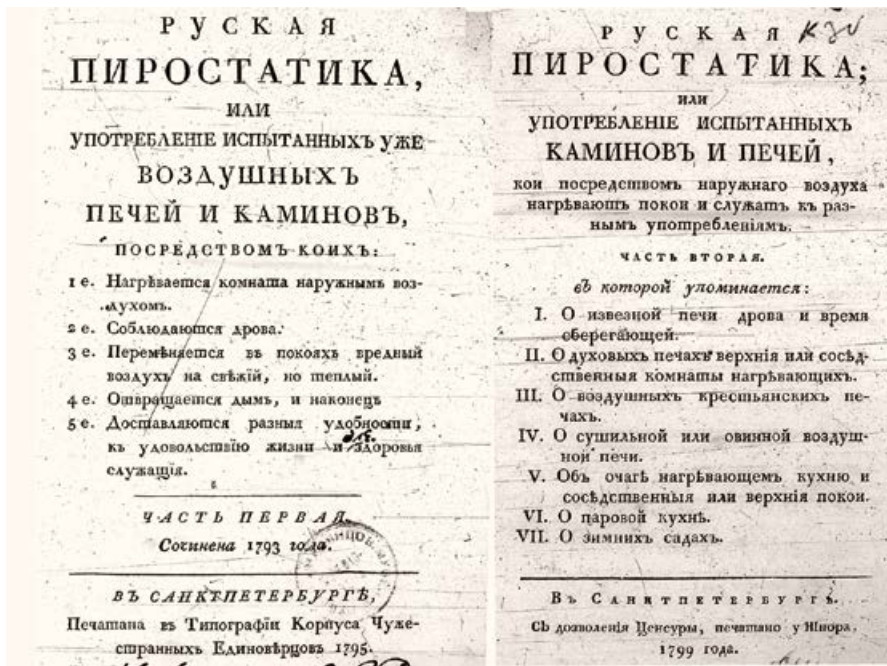 РУСКАЯ
ПИРОСТАТИКА,
ИЛИ
УПОТРЕБЛЕНІЕ ИСПЫТАННЫХЪ УЖЕ
ВОЗДУШНЫХЪ
ПЕЧЕЙ И КАМИНОВЪ,
ПОСРЕДСТВОМЪ КОИХЪ:
1 е. Нагрѣвается комната наружнымъ воз-
духомъ.
2 е. Соблюдаются дрова.
3 е. Перемѣняется въ покояхъ вредный
воздухъ на свѣжій, но теплый.
4 е. Отвращается дымъ, и наконецъ
5 е. Доставляются разныя удобности,
къ удовольствію жизни и здоровья
служащія.
ЧАСТЬ ПЕРВАЯ.
Сочинена 1793 года.
ВЪ САНКТПЕТЕРБУРГѢ,
Печатана въ Типографіи Корпуса Чуже-
странныхъ Единовѣрцовъ 1795.
РУСКАЯ
ПИРОСТАТИКА;
ИЛИ
УПОТРЕБЛЕНІЕ ИСПЫТАННЫХЪ
КАМИНОВЪ И ПЕЧЕЙ,
кои посредствомъ наружнаго воздуха
нагрѣваютъ покои и служатъ къ раз-
нымъ употребленіямъ.
ЧАСТЬ ВТОРАЯ.
въ которой упоминается:
I. О извезной печи дрова и время
сберегающей.
II. О духовыхъ печахъ верхнія или сосѣд-
ственныя комнаты нагрѣвающихъ.
III. О воздушныхъ крестьянскихъ пе-
чахъ.
IV. О сушильной или овинной воздуш-
ной печи.
V. Объ очагѣ нагрѣвающемъ кухню и
сосѣдственныя или верхнія покои.
VI. О паровой кухнѣ.
VII. О зимнихъ садахъ.
ВЪ САНКТПЕТЕРБУРГѢ.
Съ дозволенія Ценсуры, печатано у Шнора.
1799 года.